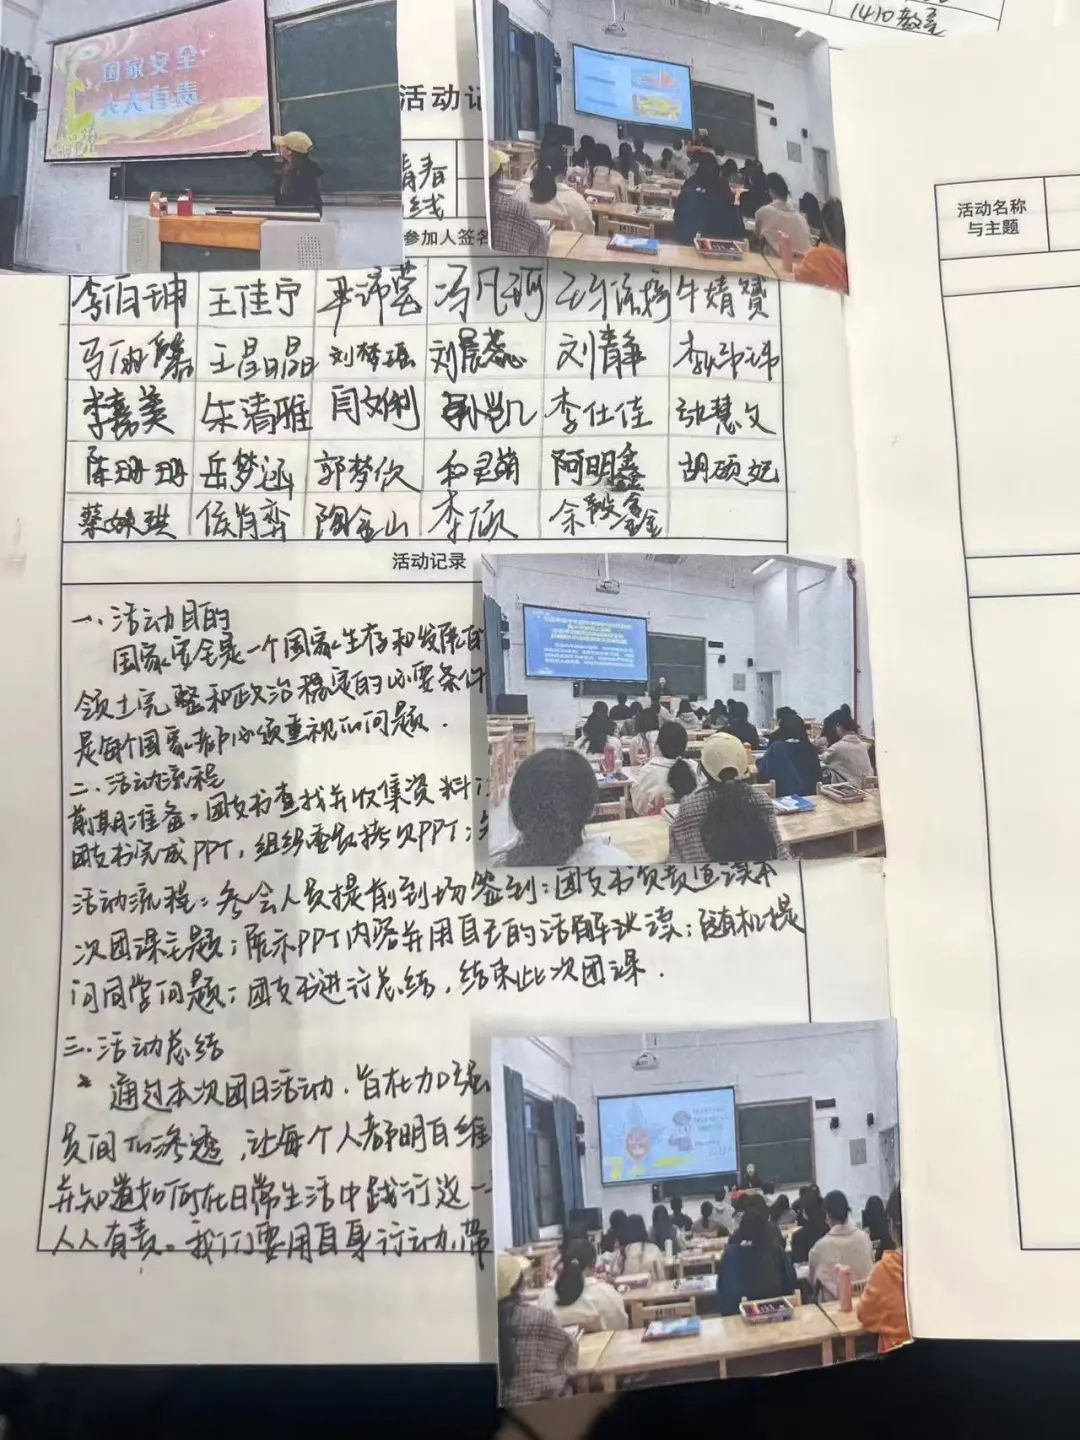 1410教室
国家安全
人人有责
活动记
青春
线
活动名称
与主题
参加人签名
李佰珅 王佳宁 冯凡珂 牛婧赟
王晶晶 刘梦瑶 刘晨蕊 刘静
李嘉美 朱清雅 闫文俐 孙凯凡 李仕佳 张慧文
陈珊珊 岳梦涵 郭梦欣 和灵萌 阿明鑫 胡硕妃
侯肖霁 陶金山 李硕
活动记录
一、活动目的
国家安全是一个国家生存和发展的
领土完整和政治稳定的必要条件
是每个国家都必须重视的问题.
二.活动流程
前期准备:团支书查找并收集资料
团支书完成PPT,组织委员拷贝PPT;
活动流程:参会人员提前到场签到;团支书负责宣读本
次团课主题;展示PPT内容并用自己的话解读;随机提
问同学问题;团支书进行总结,结束此次团课.
三.活动总结
通过本次团日活动.旨在加强
员间的渗透,让每个人都明白维
并知道如何在日常生活中践行这一
人人有责。我们要用自身行动,带